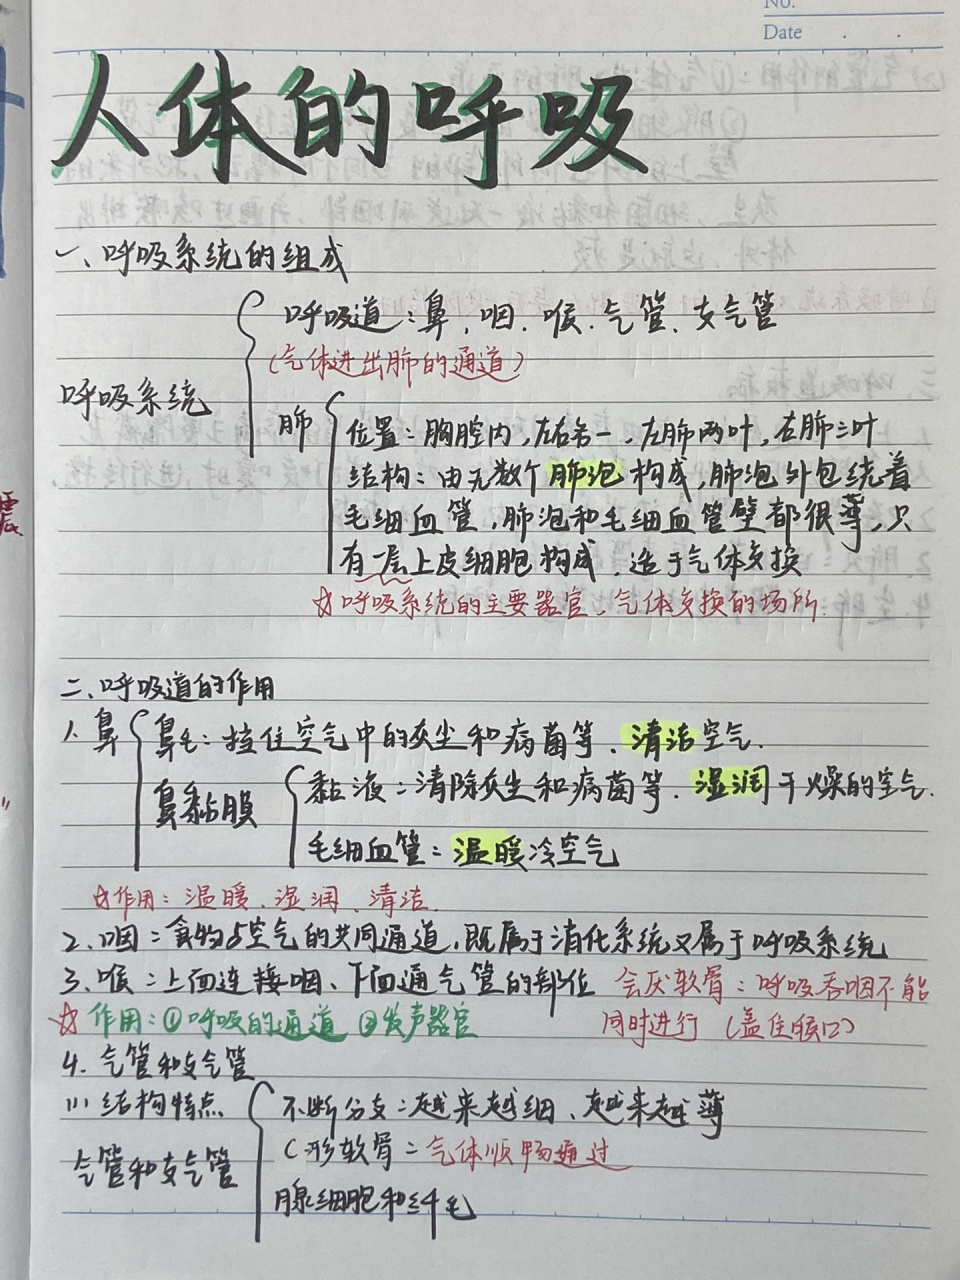 No.
Date
人体的呼吸
一、呼吸系统的组成
呼吸道：鼻、咽、喉、气管、支气管
（气体进出肺的通道）
呼吸系统
肺
位置：胸腔内，左右各一，左肺两叶，右肺三叶
结构：由无数个肺泡构成，肺泡外包绕着
毛细血管，肺泡和毛细血管壁都很薄，只
有一层上皮细胞构成，适于气体交换
☆呼吸系统的主要器官，气体交换的场所
二、呼吸道的作用
1、鼻
鼻毛：挡住空气中的灰尘和病菌等、清洁空气.
鼻黏膜
黏液：清除灰尘和病菌等、湿润干燥的空气.
毛细血管：温暖冷空气
☆作用：温暖、湿润、清洁.
2、咽：食物与空气的共同通道，既属于消化系统又属于呼吸系统
3、喉：上面连接咽、下面通气管的部位 会厌软骨：呼吸吞咽不能
☆作用：①呼吸的通道 ②发声器官 同时进行（盖住喉口）
4. 气管和支气管
(1) 结构特点
气管和支气管
不断分支：越来越细、越来越薄
C形软骨：气体顺畅通过
腺细胞和纤毛